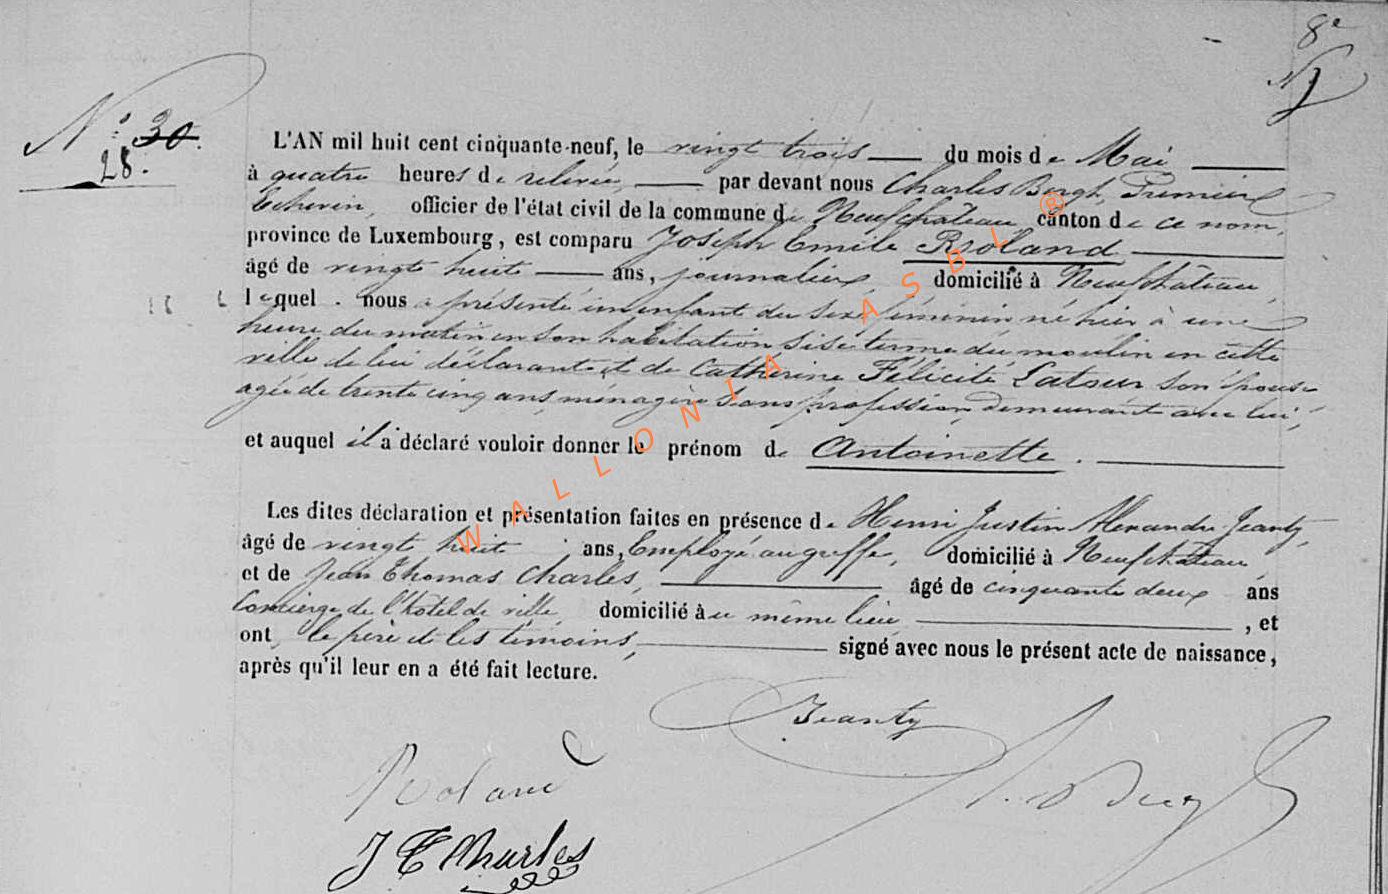 8e
N° 30.
28.
L'AN mil huit cent cinquante-neuf, le vingt trois du mois de Mai
à quatre heures de relevée, par devant nous Charles Bergh, Premier
Echevin, officier de l'état civil de la commune de Neufchâteau canton de ce nom,
province de Luxembourg, est comparu Joseph Emile Roland
âgé de vingt huit ans, journalier, domicilié à Neufchâteau,
lequel nous a présenté un enfant du sexe féminin né hier à une
heure du matin en son habitation sise terme du moulin en cette
ville de lui déclarant et de Catherine Félicité Latour son épouse
agée de trente cinq ans, ménagère sans profession, demeurant avec lui,
et auquel il a déclaré vouloir donner le prénom de Antoinette.
Les dites déclaration et présentation faites en présence de Henri Justin Alexandre Jeanty,
âgé de vingt huit ans, Employé au greffe, domicilié à Neufchâteau,
et de Jean Thomas Charles, âgé de cinquante deux ans
Concierge de l'hôtel de ville domicilié au même lieu, et
ont, le père et les témoins, signé avec nous le présent acte de naissance,
après qu'il leur en a été fait lecture.
Jeanty
Roland
J T Charles
WALLONIA ASBL ®